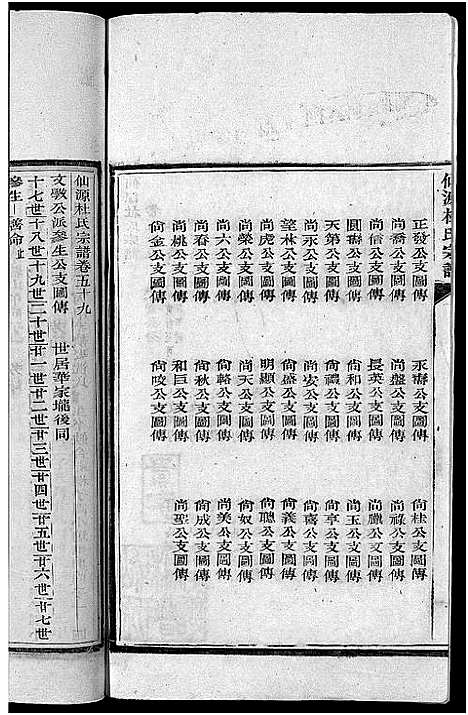 仙源杜氏宗譜
正發公支圖傳 永壽公支圖傳 尙桂公支圖傳
尙喬公支圖傳 尙盤公支圖傳 尙祿公支圖傳
尙信公支圖傳 長英公支圖傳 尙臘公支圖傳
圓壽公支圖傳 尙和公支圖傳 尙玉公支圖傳
天第公支圖傳 尙禮公支圖傳 尙亨公支圖傳
尙永公支圖傳 尙安公支圖傳 尙喜公支圖傳
望林公支圖傳 尙盛公支圖傳 尙義公支圖傳
尙虎公支圖傳 明顯公支圖傳 尙聰公支圖傳
尙榮公支圖傳 尙天公支圖傳 尙奴公支圖傳
尙六公支圖傳 尙輅公支圖傳 尙美公支圖傳
尙春公支圖傳 尙秋公支圖傳 尙成公支圖傳
尙桃公支圖傳 和巨公支圖傳 尙聖公支圖傳
尙金公支圖傳 尙陵公支圖傳
仙源杜氏宗譜卷五十九
文斆公派參生公支圖傳 世居華家壠後同
十七世十八世十九世二十世廿一世廿二世廿三世廿四世廿五世廿六世廿七世
參生 善命